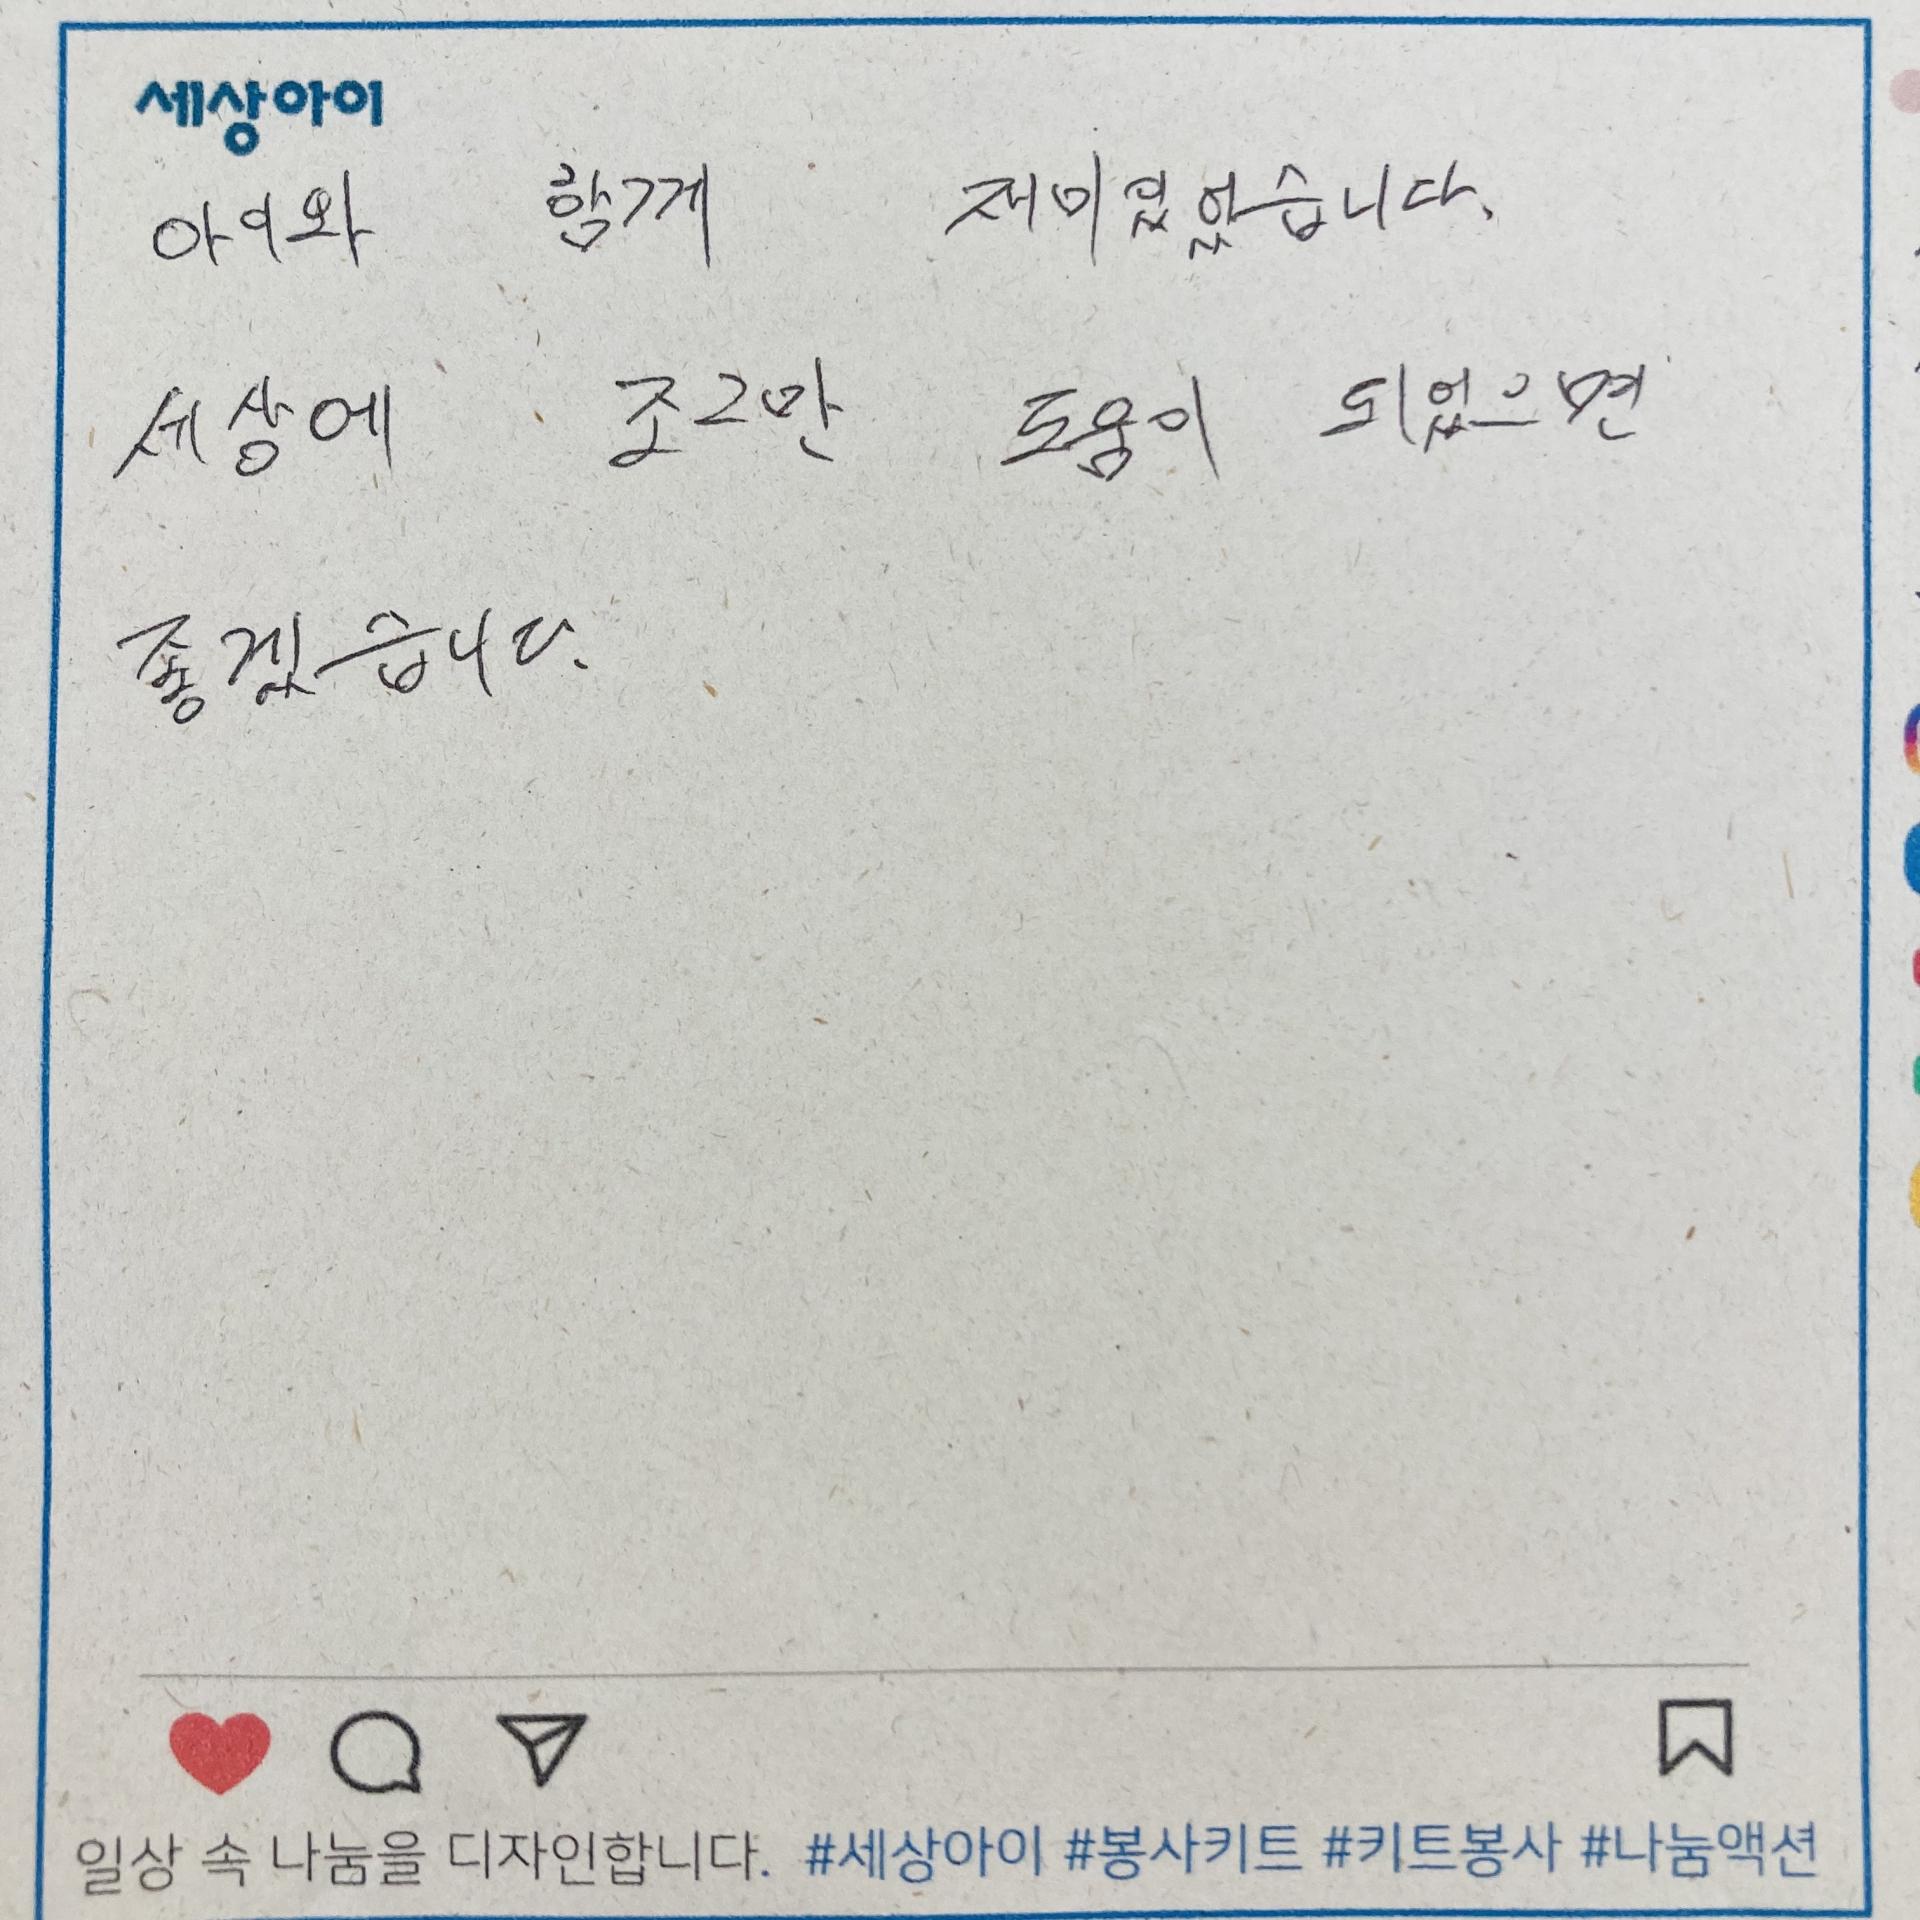 세상아이
아이와 함께 재미있었습니다.
세상에 조그만 도움이 되었으면
좋겠습니다.
일상 속 나눔을 디자인합니다. #세상아이 #봉사키트 #키트봉사 #나눔액션